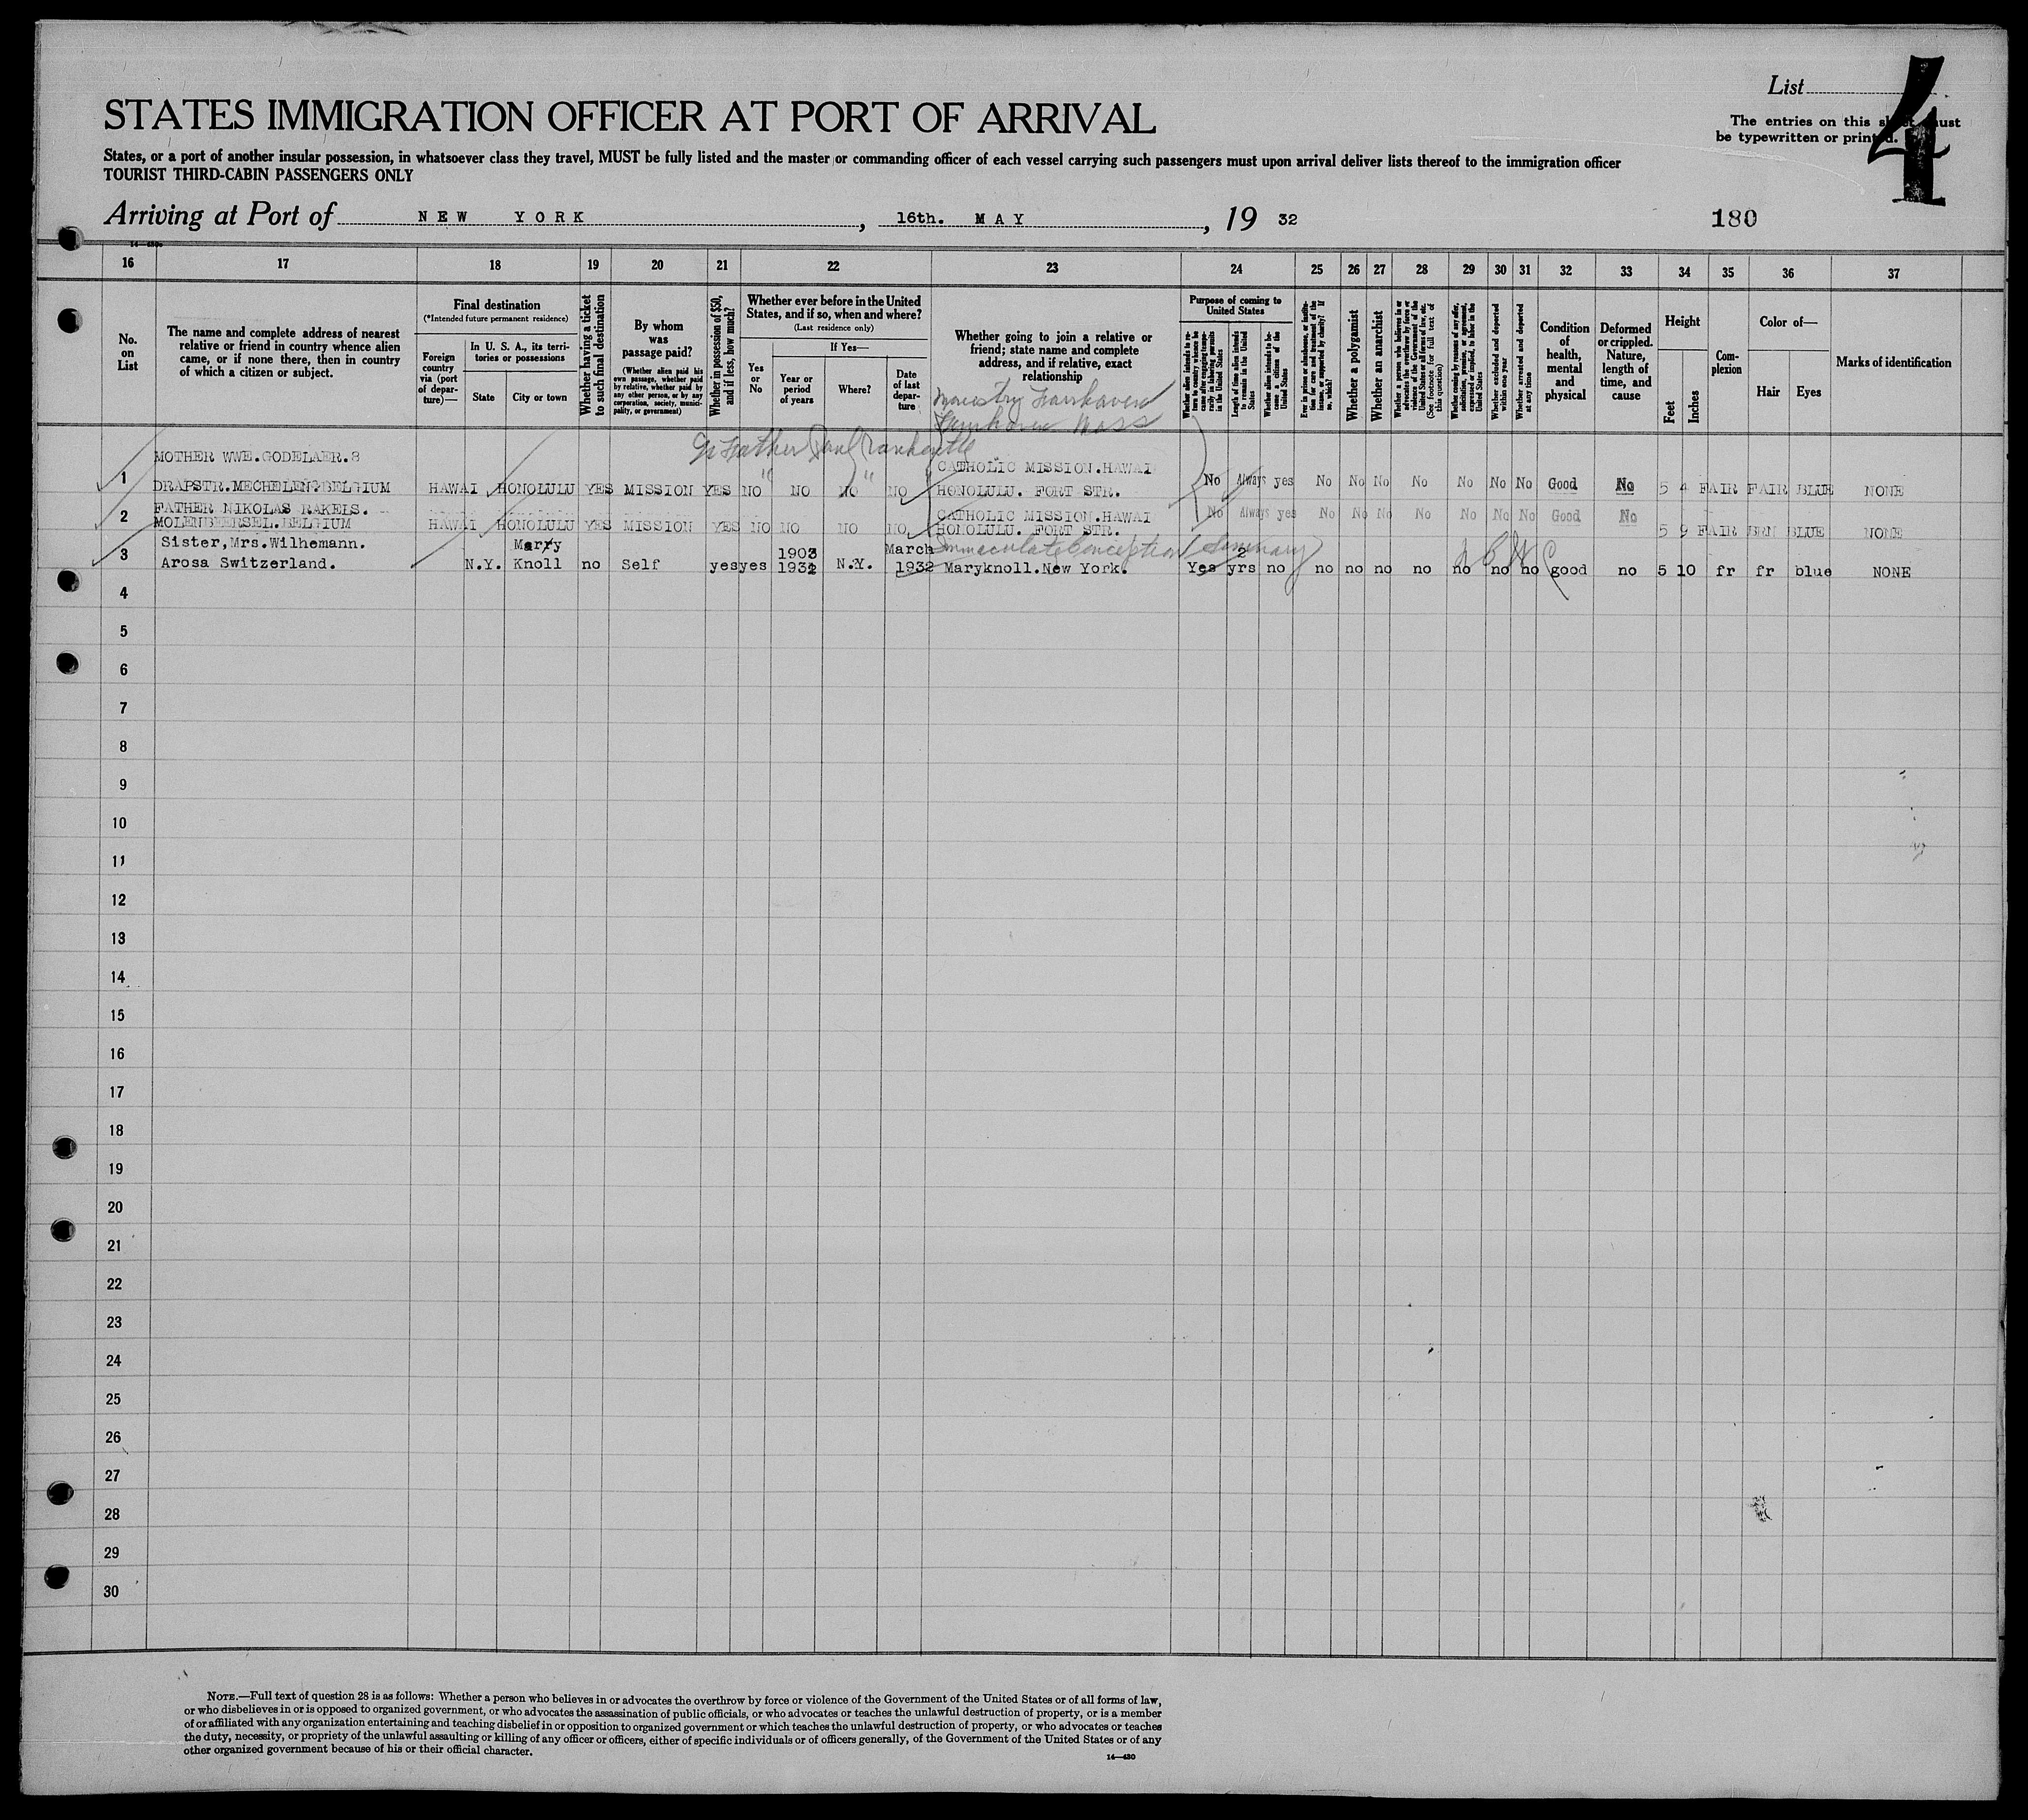 List
4
The entries on this sheet must
be typewritten or printed.
STATES IMMIGRATION OFFICER AT PORT OF ARRIVAL
States, or a port of another insular possession, in whatsoever class they travel, MUST be fully listed and the master or commanding officer of each vessel carrying such passengers must upon arrival deliver lists thereof to the immigration officer
TOURIST THIRD-CABIN PASSENGERS ONLY
Arriving at Port of NEW YORK, 16th. MAY, 19 32
180
16 17 18 19 20 21 22 23 24 25 26 27 28 29 30 31 32 33 34 35 36 37
No. on List
The name and complete address of nearest relative or friend in country whence alien came, or if none there, then in country of which a citizen or subject.
Final destination
(*Intended future permanent residence)
Foreign country via (port of departure)—
In U. S. A., its territories or possessions
State
City or town
Whether having a ticket to such final destination
By whom was passage paid?
(Whether alien paid his own passage, whether paid by relative, whether paid by any other person, or by any corporation, society, municipality, or government)
Whether in possession of $50, and if less, how much?
Whether ever before in the United States, and if so, when and where?
(Last residence only)
Yes or No
If Yes—
Year or period of years
Where?
Date of last departure
Whether going to join a relative or friend; state name and complete address, and if relative, exact relationship
Purpose of coming to United States
Whether alien intends to return to country whence he came after engaging temporarily in laboring pursuits in the United States
Length of time alien intends to remain in the United States
Whether alien intends to become a citizen of the United States
Ever in prison or almshouse, or institution for care and treatment of the insane, or supported by charity? If so, which?
Whether a polygamist
Whether an anarchist
Whether a person who believes in or advocates the overthrow by force or violence of the Government of the United States or all forms of law, etc. (See footnote for full text of this question)
Whether coming by reason of any offer, solicitation, promise, or agreement, expressed or implied, to labor in the United States
Whether excluded and deported within one year
Whether arrested and deported at any time
Condition of health, mental and physical
Deformed or crippled. Nature, length of time, and cause
Height
Feet
Inches
Complexion
Color of—
Hair
Eyes
Marks of identification
Fairhaven
Fairhaven Mass
Father Paul
MOTHER WWE.GODELAER.8 CATHOLIC MISSION.HAWAI
1 DRAPSTR.MECHELEN.BELGIUM HAWAI HONOLULU YES MISSION YES NO NO NO NO HONOLULU. FORT STR. No Always yes No No No No No No No Good No 5 4 FAIR FAIR BLUE NONE
FATHER NIKOLAS RAKELS. CATHOLIC MISSION.HAWAI
2 MOLENBEERSEL.BELGIUM HAWAI HONOLULU YES MISSION YES NO NO NO NO HONOLULU. FORT STR. No Always yes No No No No No No No Good No 5 9 FAIR BRN BLUE NONE
Sister,Mrs.Wilhemann. Marry 1903 March Immaculate Conception Seminary 2
3 Arosa Switzerland. N.Y. Knoll no Self yes yes 1932 N.Y. 1932 Maryknoll.New York. Yes yrs no no no no no no no no good no 5 10 fr fr blue NONE
4
5
6
7
8
9
10
11
12
13
14
15
16
17
18
19
20
21
22
23
24
25
26
27
28
29
30
NOTE.—Full text of question 28 is as follows: Whether a person who believes in or advocates the overthrow by force or violence of the Government of the United States or of all forms of law,
or who disbelieves in or is opposed to organized government, or who advocates the assassination of public officials, or who advocates or teaches the unlawful destruction of property, or is a member
of or affiliated with any organization entertaining and teaching disbelief in or opposition to organized government or which teaches the unlawful destruction of property, or who advocates or teaches
the duty, necessity, or propriety of the unlawful assaulting or killing of any officer or officers, either of specific individuals or of officers generally, of the Government of the United States or of any
other organized government because of his or their official character.
14—430